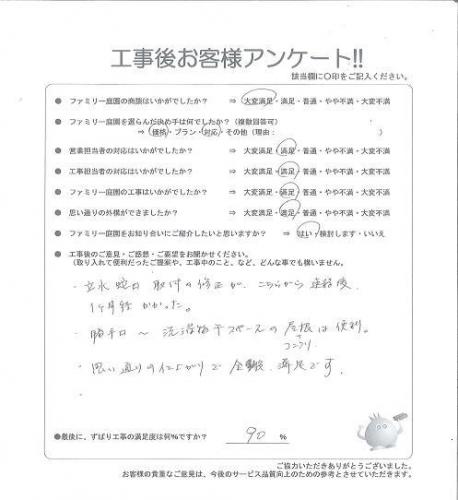 工事後お客様アンケート!!
該当欄に○印をご記入ください。
● ファミリー庭園の商談はいかがでしたか? ⇒ 大変満足・満足・普通・やや不満・大変不満
● ファミリー庭園を選らんだ決め手は何でしたか?(複数回答可)
⇒ 価格・プラン・対応・その他(理由: )
● 営業担当者の対応はいかがでしたか? ⇒ 大変満足・満足・普通・やや不満・大変不満
● 工事担当者の対応はいかがでしたか? ⇒ 大変満足・満足・普通・やや不満・大変不満
● ファミリー庭園の工事はいかがですか? ⇒ 大変満足・満足・普通・やや不満・大変不満
● 思い通りの外構ができましたか? ⇒ 大変満足・満足・普通・やや不満・大変不満
● ファミリー庭園をお知り合いにご紹介したいと思いますか? ⇒ はい・検討します・いいえ
● 工事後のご意見・ご感想・ご要望をお聞かせください。
(取り入れて便利だったご提案や、工事中のこと、など、どんな事でも構いません。
・立水蛇口 取付の修正が、こちらから連絡後、
1ヶ月経かかった。
・勝手口 ~ 洗濯物干スペースの 屋根は 便利。
コンクリ
・思い通りの仕上がりで 全般 満足です。
・
●最後に、ずばり工事の満足度は何%ですか? 90 %
ご協力いただきありがとうございました。
お客様の貴重なご意見は、今後のサービス品質向上のための参考とさせていただきます。